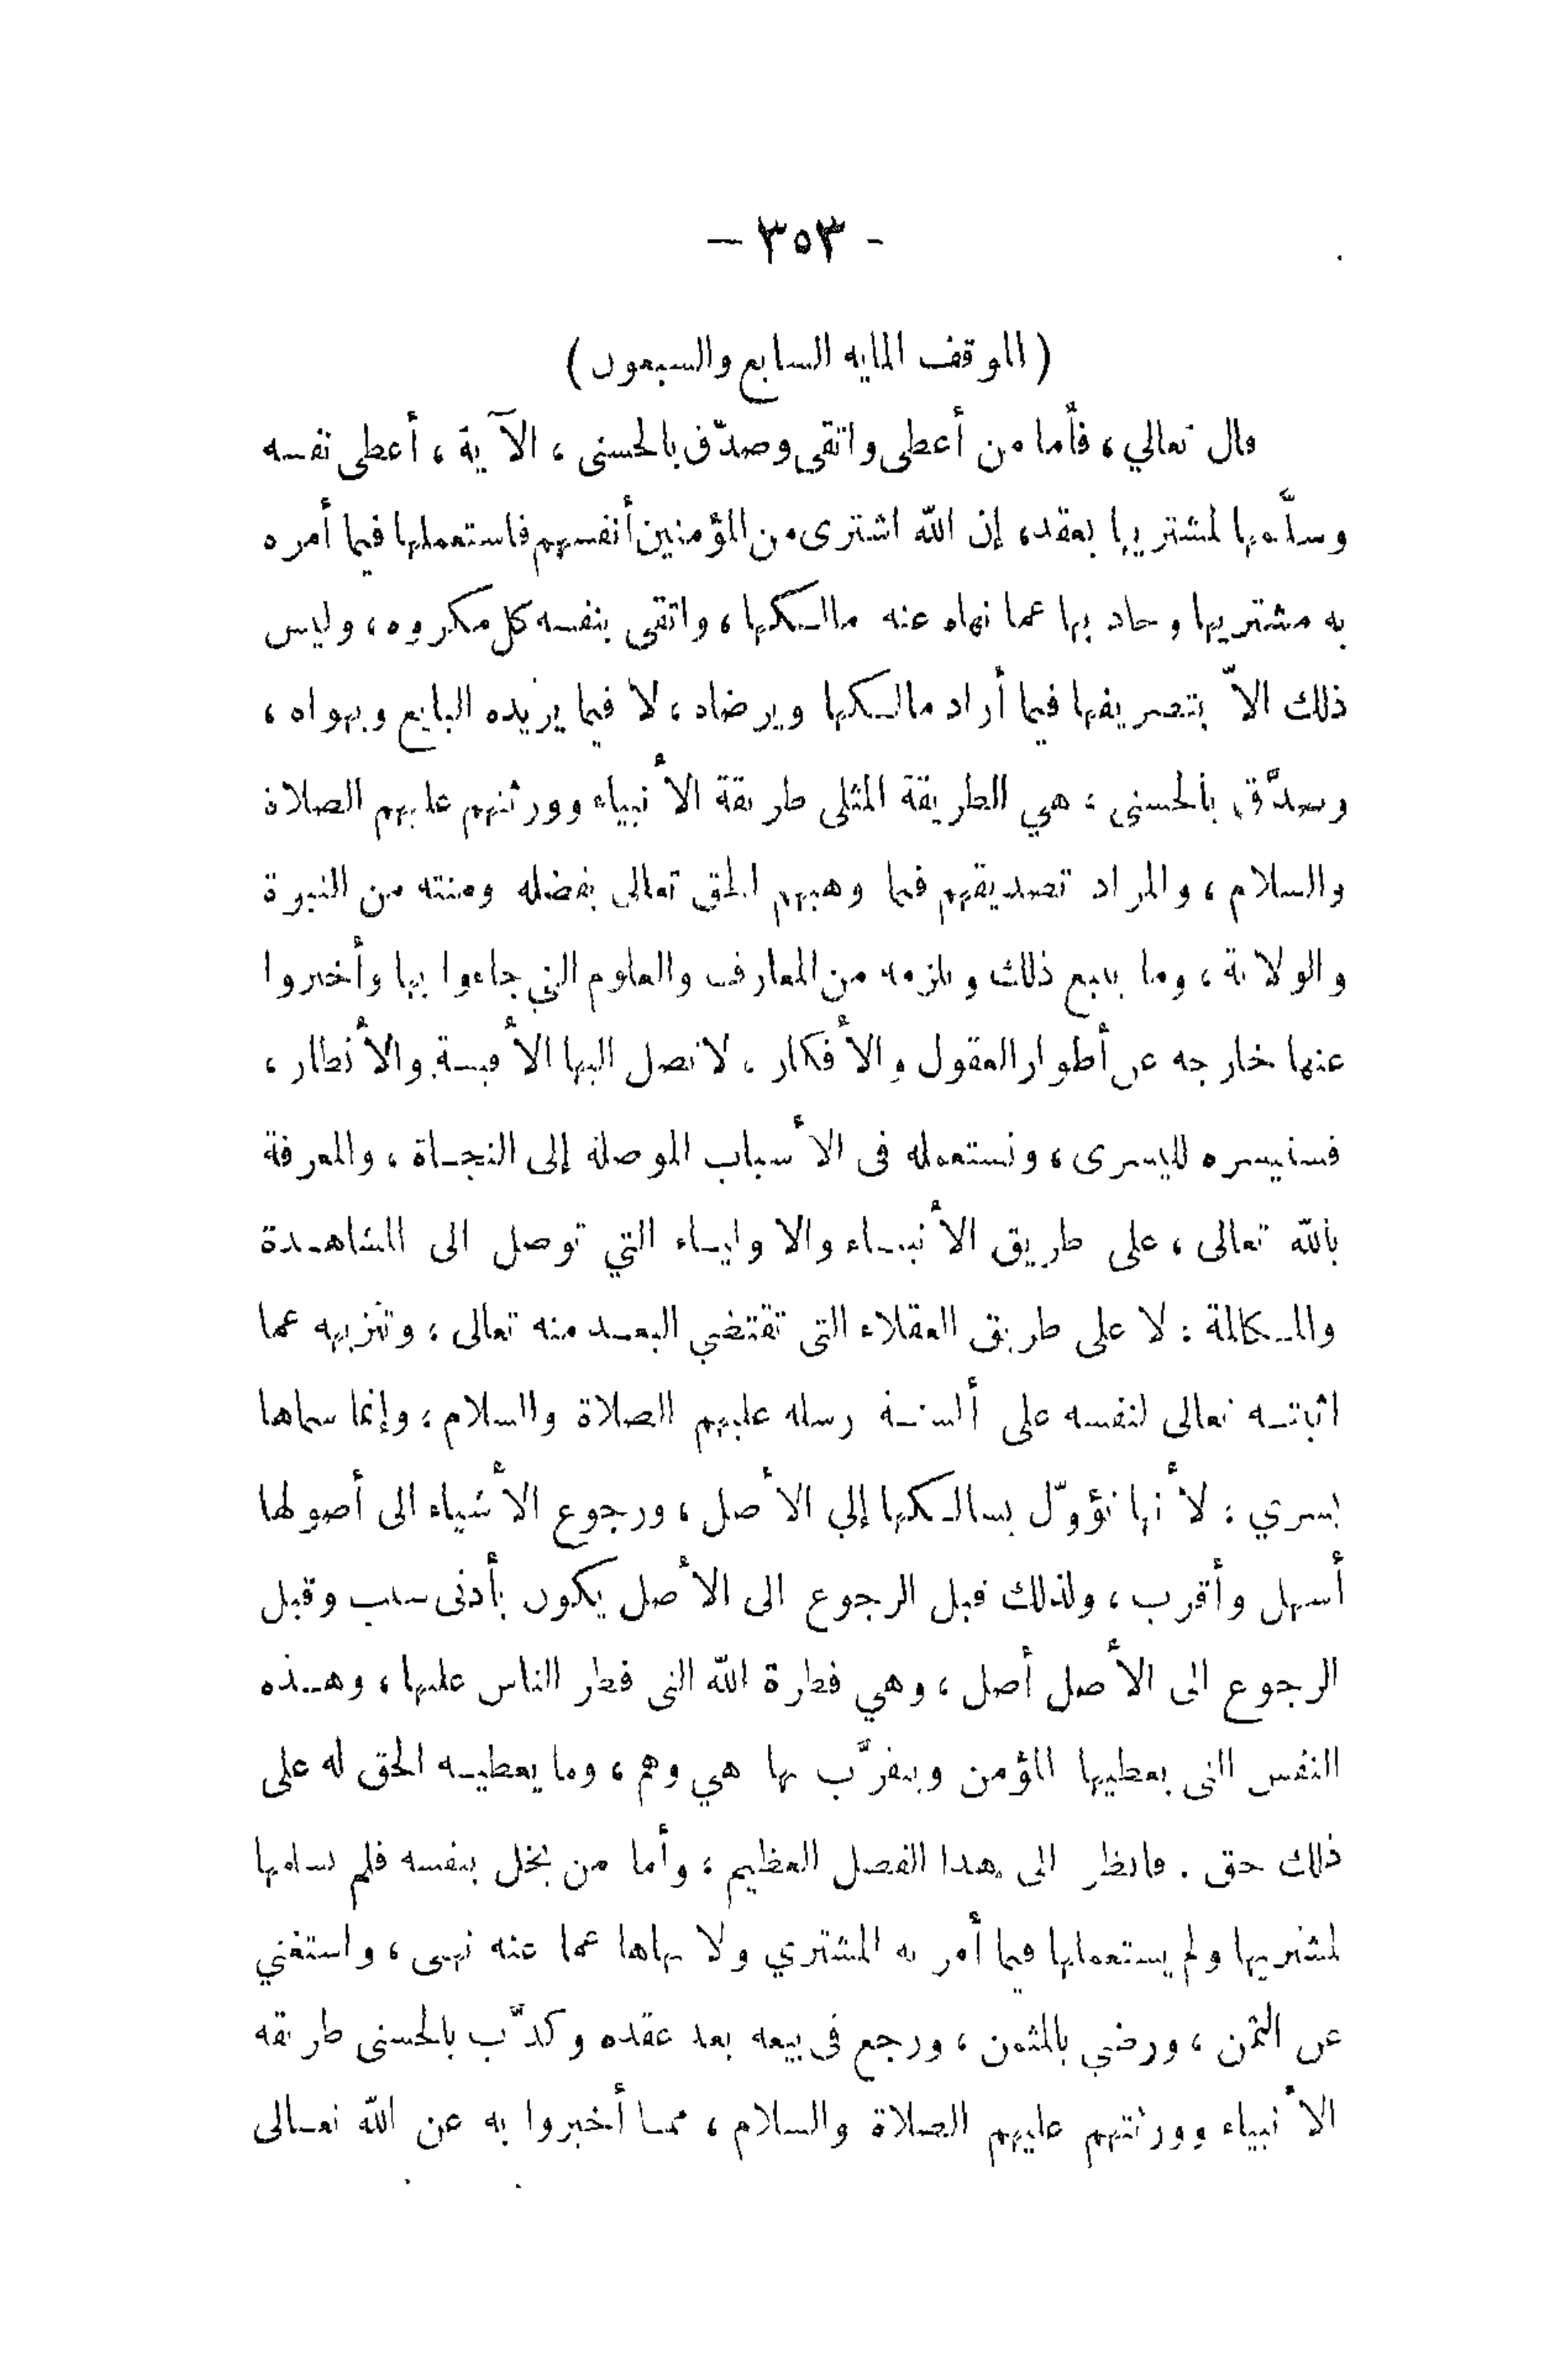 - ٣٥٣ -
( الموقف المايه السابع والسبعون )
قال تعالي ، فأما من أعطى واتقى وصدّق بالحسنى ، الآية ، أعطى نفسه
وسلّمها لمشتريها بعقد ، إن الله اشترى من المؤمنين أنفسهم فاستعملها فيما أمره
به مشتريها وحاد بها عما نهاه عنه مالكها ، واتقى بنفسه كل مكروه ، وليس
ذلك الاّ بتصريفها فيما أراد مالكها ويرضاه ، لا فيما يريده البايع ويهواه ،
وصدَّق بالحسنى : هي الطريقة المثلى طريقة الأنبياء وورثتهم عليهم الصلاة
والسلام ، والمراد تصديقهم فيما وهبهم الحق تعالى بفضله ومنته من النبوة
والولاية ، وما يتبع ذلك ويلزمه من المعارف والعلوم التي جاءوا بها وأخبروا
عنها خارجه عن أطوار العقول والأفكار ، لا تصل اليها الأقيسة والأنظار ،
فسنيسره لليسرى ، ونستعمله فى الأسباب الموصلة إلى النجاة ، والمعرفة
بالله تعالى ، على طريق الأنبياء والاولياء التي توصل الى المشاهدة
والمكالمة : لا على طريق العقلاء التى تقتضي البعد منه تعالى ، وتنزيهه عما
اثبته تعالى لنفسه على ألسنة رسله عليهم الصلاة والسلام ، وإنما سماها
يسري : لأنها تؤوّل بسالكها إلي الأصل ، ورجوع الأشياء الى أصولها
أسهل وأقرب ، ولذلك قيل الرجوع الى الأصل يكون بأدنى سبب وقيل
الرجوع الى الأصل أصل ، وهي فطرة الله التى فطر الناس عليها ، وهذه
النفس التى يعطيها المؤمن ويتقرَّب بها هي وهم ، وما يعطيه الحق له على
ذلك حق . فانظر الى هذا الفضل العظيم ؛ وأما من بخل بنفسه فلم يسلمها
لمشتريها ولم يستعملها فيما أمر به المشتري ولا نهاها عما عنه نهى ، واستغني
عن الثمن ، ورضي بالمثمن ، ورجع فى بيعه بعد عقده وكذَّب بالحسنى طريقه
الأنبياء وورثتهم عليهم الصلاة والسلام ، مما أخبروا به عن الله تعالى